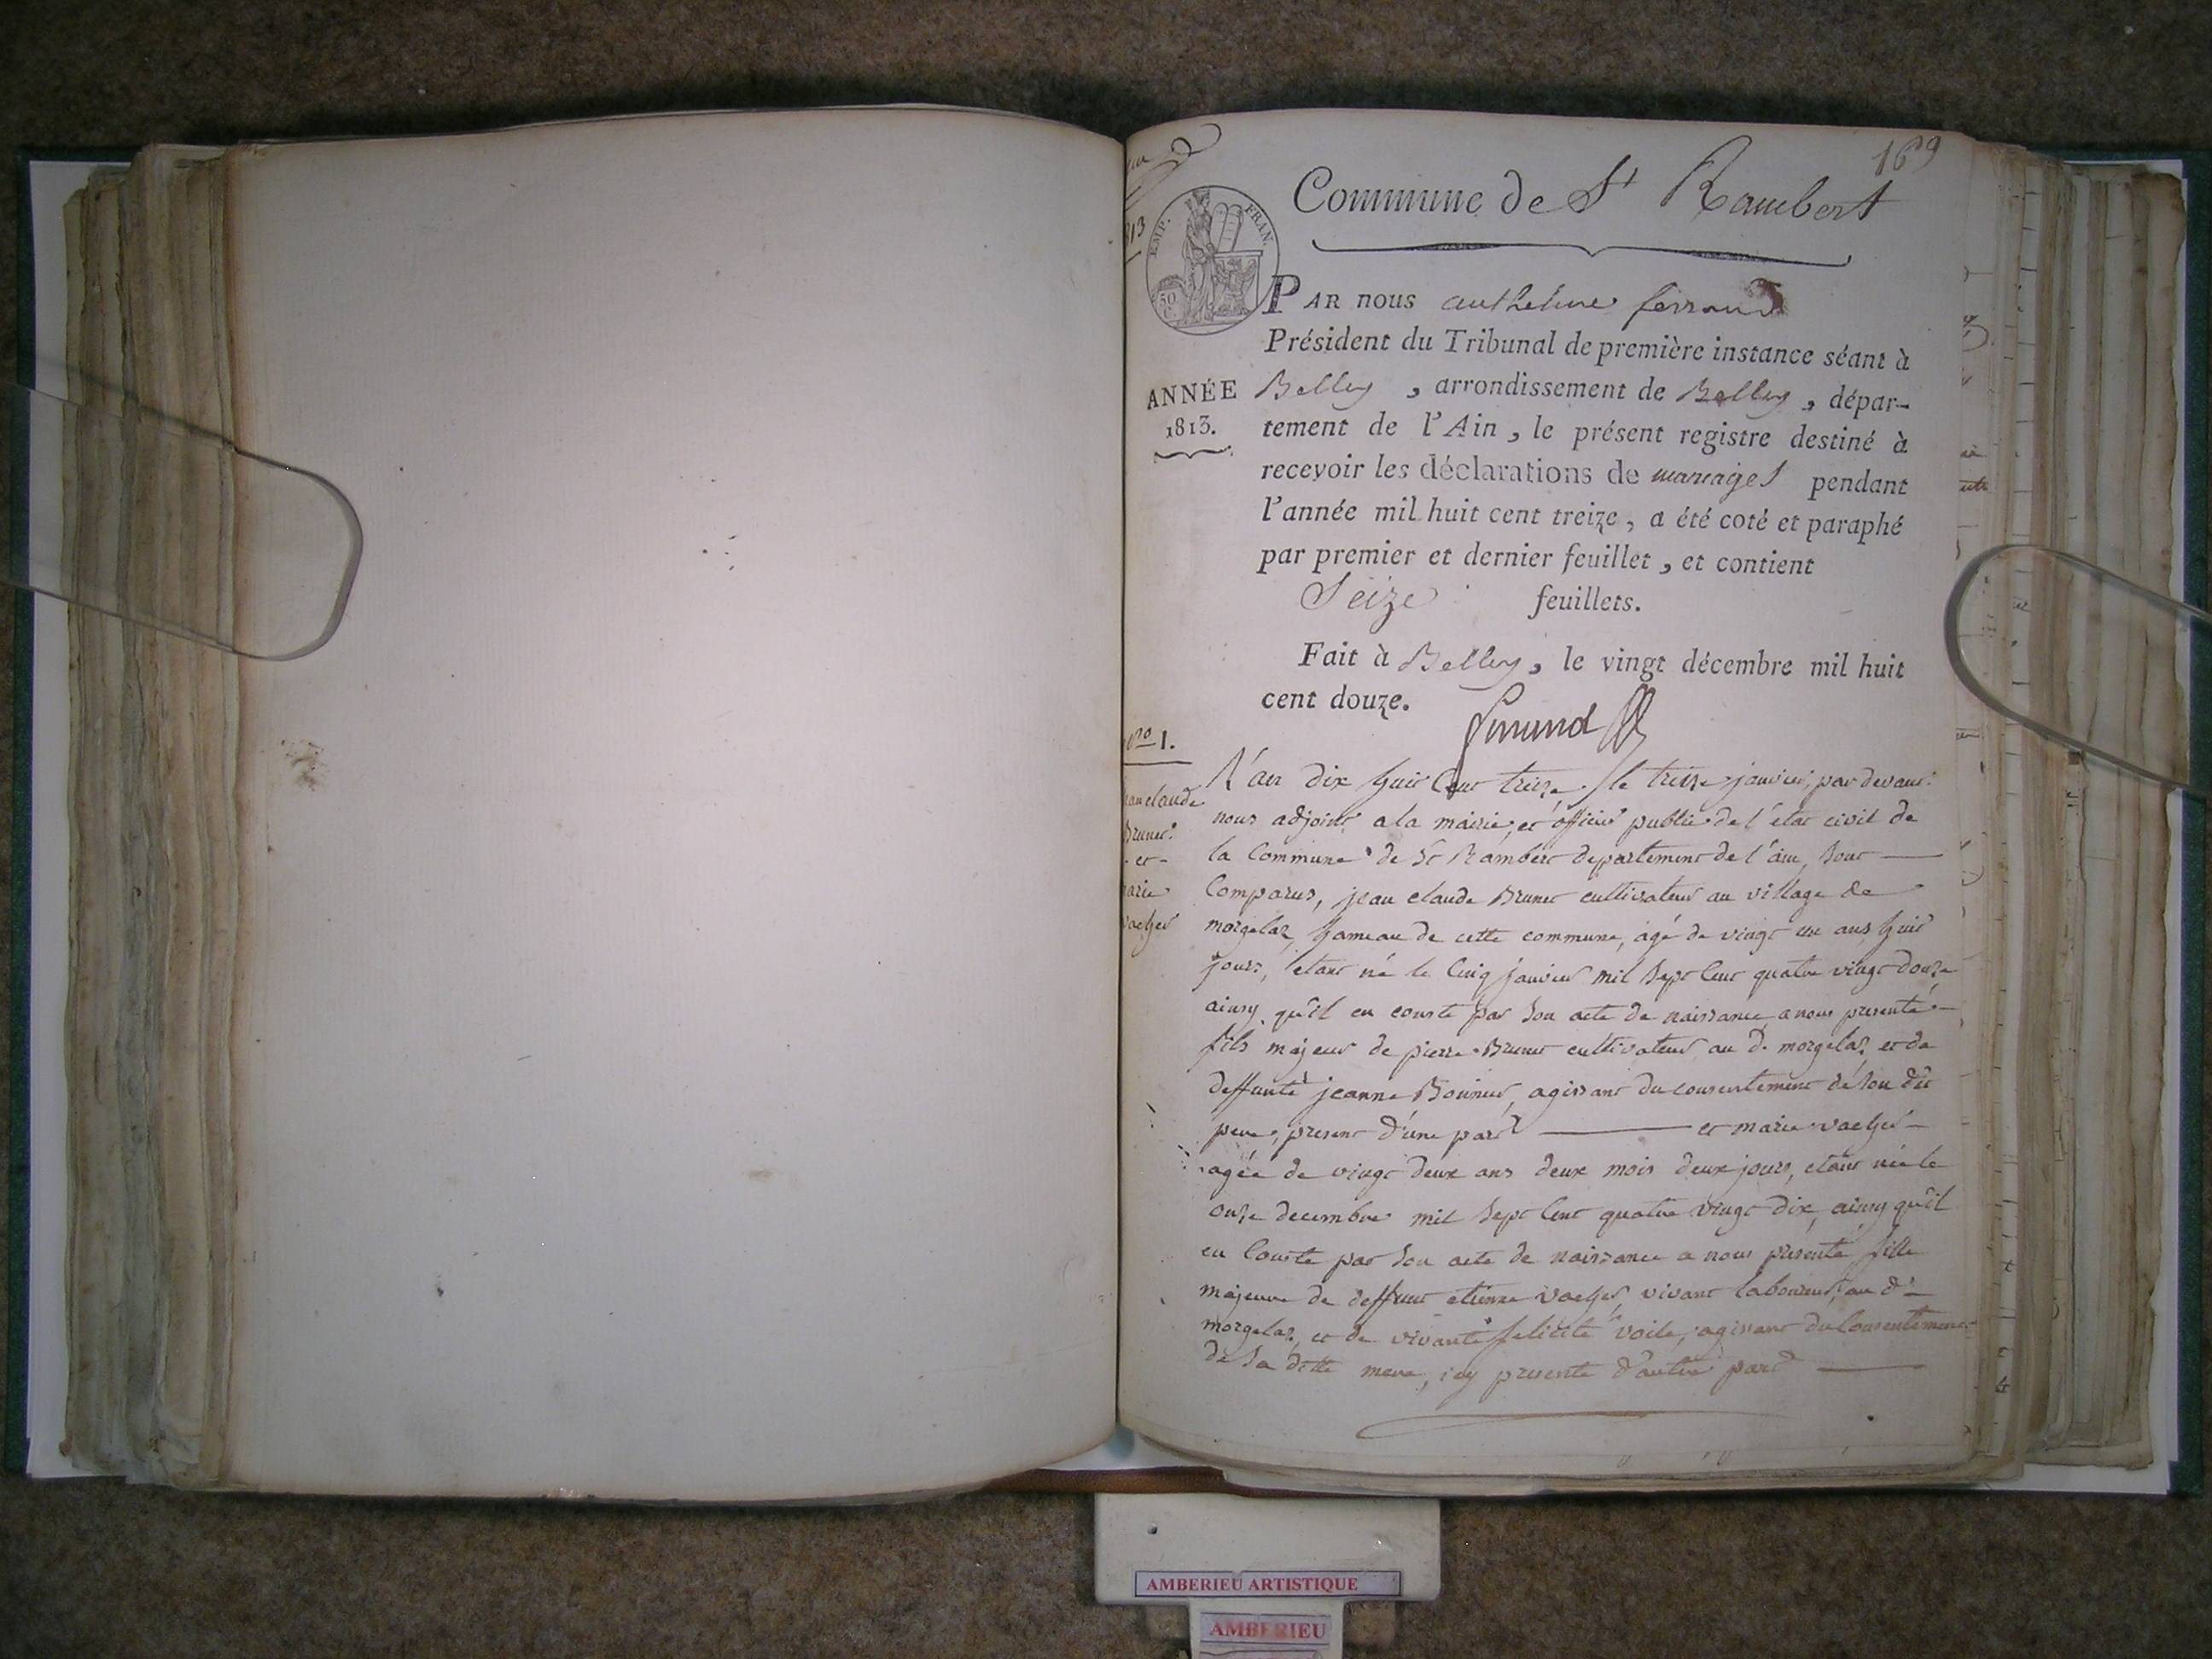 169
Commune de St Rambert
EMP. FRAN.
50 C.
813
PAR nous anthelme ferrand
Président du Tribunal de première instance séant à
ANNÉE
1813.
Belley , arrondissement de Belley , dépar-
tement de l'Ain , le présent registre destiné à
recevoir les déclarations de mariages pendant
l'année mil huit cent treize , a été coté et paraphé
par premier et dernier feuillet , et contient
Seize feuillets.
Fait à Belley , le vingt décembre mil huit
cent douze.
ferrand
No 1.
jean claude
Brunet
- et -
marie
vacher
L'an dix huit Cent treize le treize janvier, par devant
nous adjoint a la mairie, et officier public de l'état civil de
la Commune de St Rambert departement de l'ain, sont
Comparus, jean claude Brunet cultivateur au village de
morgelaz, hameau de cette commune, agé de vingt un ans huit
jours, etant né le Cinq janvier mil Sept Cent quatre vingt douze
ainsy qu'il en conste par son acte de naissance a nous presenté
fils majeur de pierre Brunet cultivateur au d. morgelaz et de
deffunte jeanne Bonnet, agissant du consentement de son dit
pere, present d'une part et marie vacher
agée de vingt deux ans deux mois deux jours, etant née le
onze decembre mil Sept Cent quatre vingt dix, ainsy qu'il
en Conste par son acte de naissance a nous presenté fille
majeure de deffunt etienne vacher, vivant laboureur, au dt
morgelaz, et de vivante felicité voile, agissant du Consentement
de sa ditte mere, icy presente d'autre part
AMBERIEU ARTISTIQUE
AMBERIEU